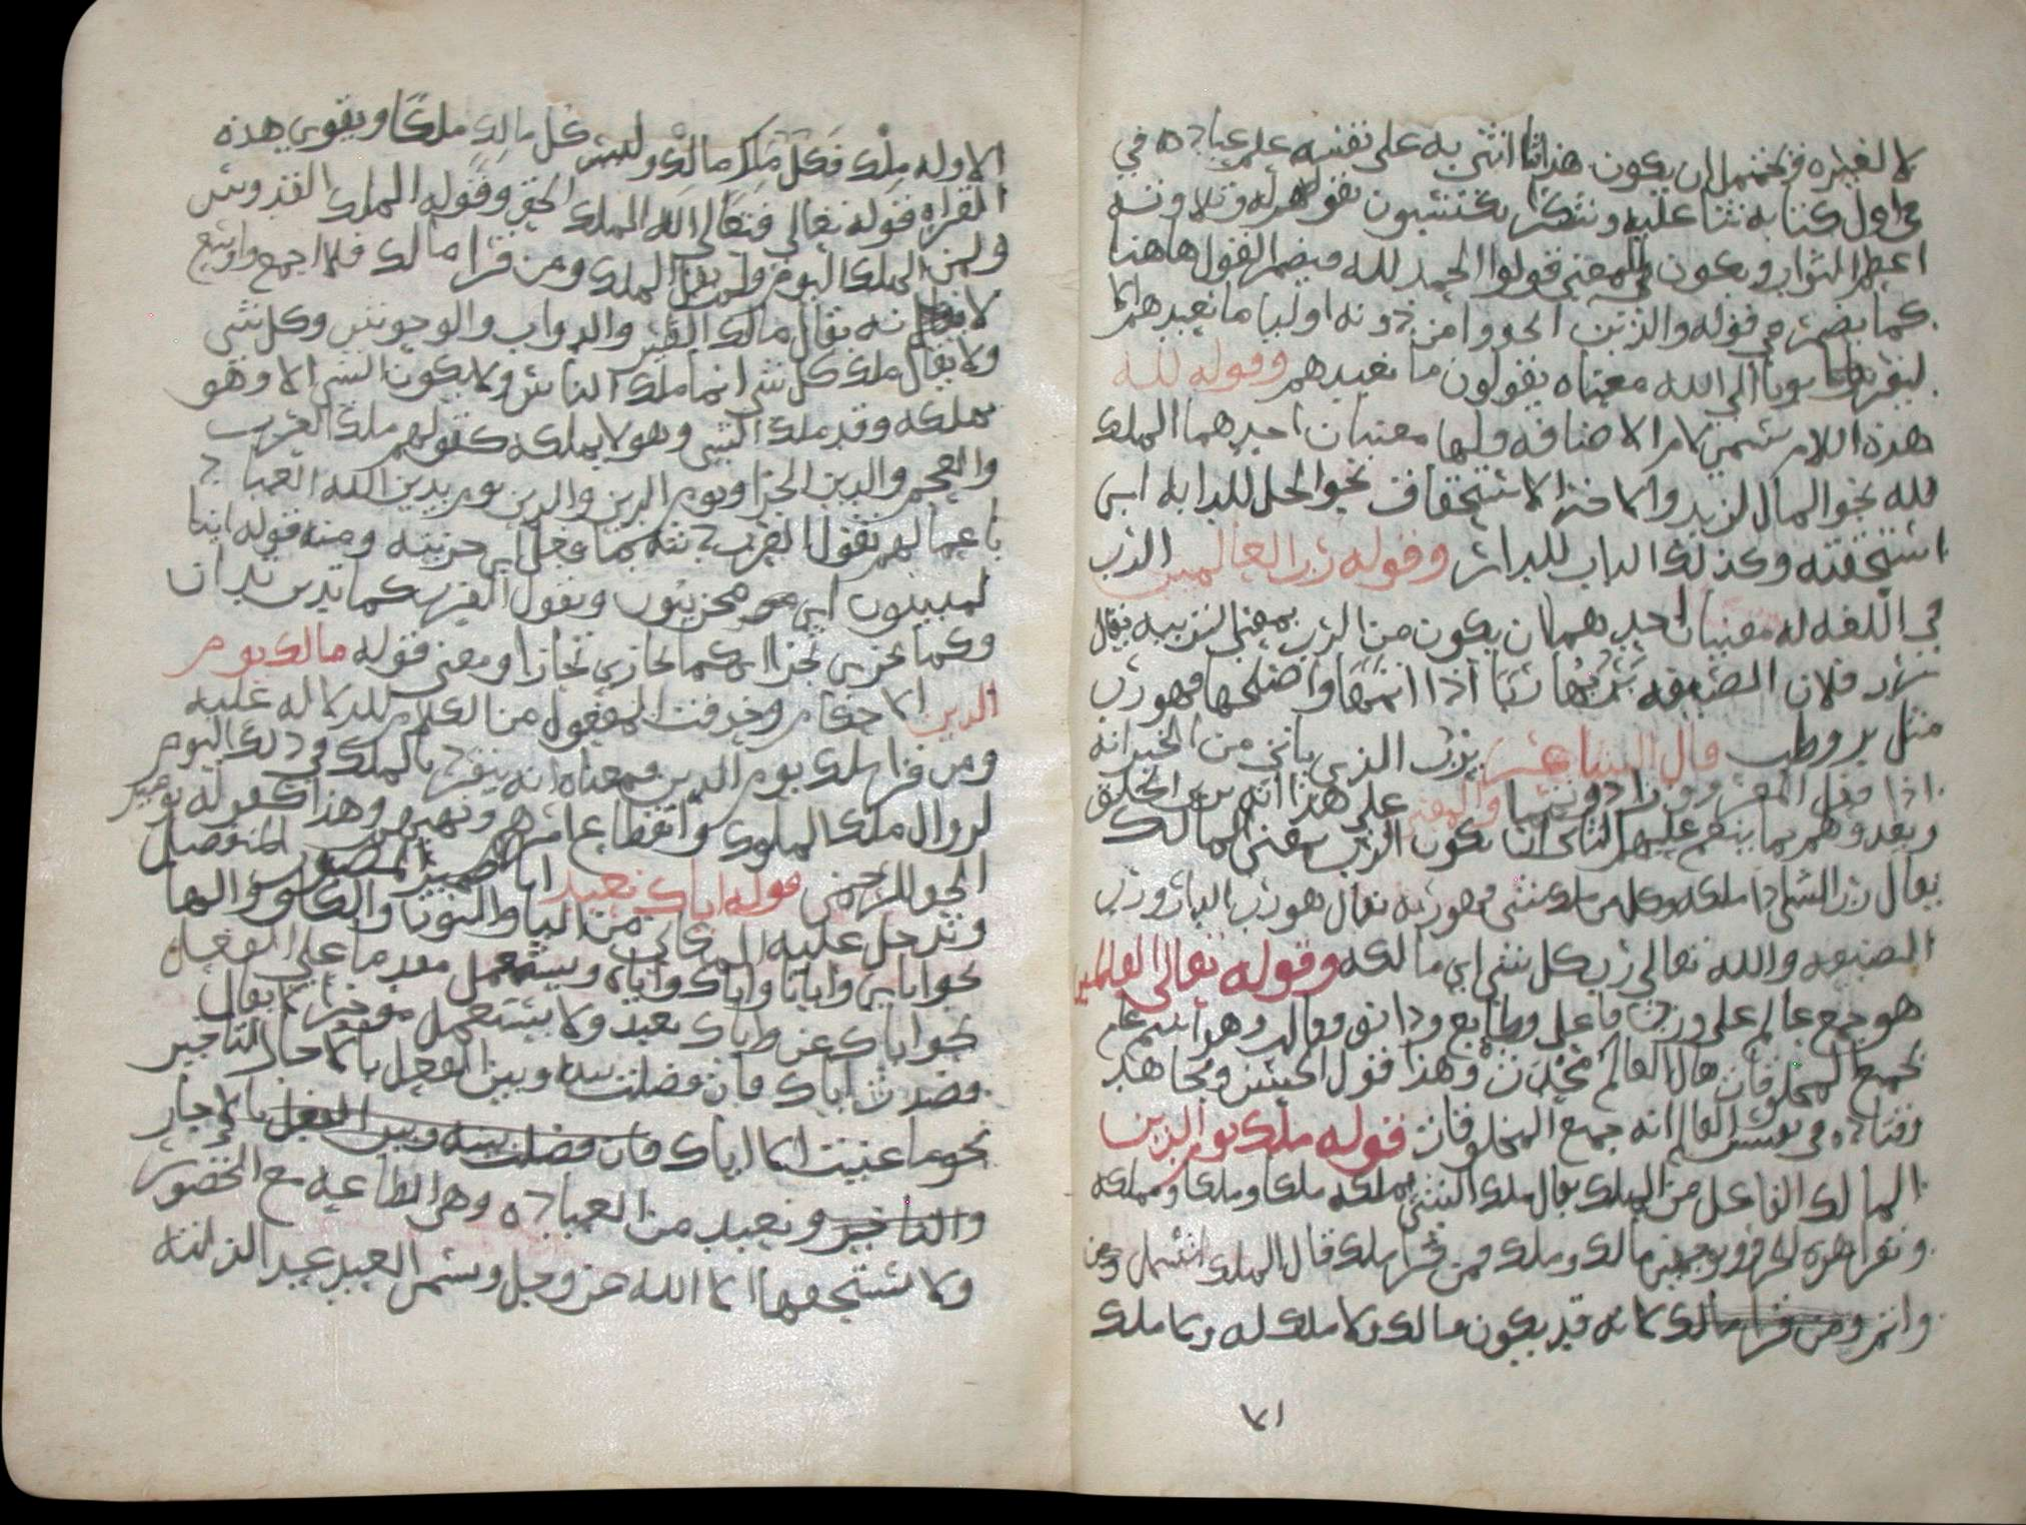 لا لغيره فيحتمل ان يكون هذا ثنا اثنى به على نفسه علم عباده في
في اول كتابه ثنا عليه وشكرا يكتسبون بقولهم له وتلاوته
اعظم الثواب ويكون المعنى قولوا الحمد لله فيضمر القول هاهنا
كما يضمر في قوله والذين اتخذوا من دونه اوليا ما نعبدهم الا
ليقربونا الى الله معناه يقولون ما نعبدهم وقوله لله
هذه اللام تسمى لام الاضافه ولها معنيان احدهما الملك
لله نحو المال لزيد والاخر الاستحقاق نحو الجل للدابه اي
استحقته وكذلك الباب للدار وقوله رب العالمين الرب
في اللغه له معنيان احدهما ان يكون من الرب بمعنى التربيه يقال
رب فلان الضيعه يربها ربا اذا اتمها واصلحها فهو رب
مثل بر وطب قال الشاعر يرب الذي ياتي من الخير انه
اذا فعل المعروف زاد وتمما والمعنى على هذا انه يربي الخلق
ويغذوهم بما ينعم عليهم الثاني ان يكون الرب بمعنى المالك
يقال رب الشي اذا ملكه وكل من ملك شي فهو ربه يقال هو رب الدار ورب
الضيعه والله تعالى رب كل شي اي مالكه وقوله تعالى العالمين
هو جمع عالم على وزن فاعل وطابع ودانق وقالب وهو اسم عام
لجميع المخلوقات يقال العالم محدث وهذا قول الحسن ومجاهد
وقتاده في تفسير العالم انه جميع المخلوقات قوله ملك يوم الدين
المالك الفاعل من الملك يقال ملك الشي يملكه ملكا وملكا ومملكه
ويقرا هذه الحرف بوجهين مالك وملك فمن قرا ملك قال الملك اشمل
واتم ومن قرا مالك لانه قد يكون مالك ولا ملك له ولا ملك
٧١
الا وله ملك فكل ملك مالك وليس كل مالك ملكا ويقوي هذه
القراه قوله تعالى فتعالى الله الملك الحق وقوله الملك القدوس
ولمن الملك اليوم ولم يقل الملك ومن قرا مالك فلا اجمع واوسع
لانه يقال مالك الطير والدواب والوحوش وكل شي
ولا يقال ملك كل شي انما ملك الناس ولا يكون الشي الا وهو
يملكه وقد ملك الشي وهو لا يملكه كقولهم ملك العرب
والعجم والدين الجزا ويوم الدين والدين يوم يدين الله العباد
باعمالهم تقول العرب دنته بما فعل اي جزيته ومنه قوله اينا
لمدينون اي مجزيون وتقول العرب كما تدين تدان
وكما تجزي تجزا اي كما تجازي تجازا ومعنى قوله مالك يوم
الدين الاحكام وحذفت المفعول من الكلام للدلاله عليه
ومن قرا ملك يوم الدين فمعناه انه ينفرد بالملك في ذلك اليوم
لزوال ملك الملوك وانقطاع امرهم ونهيهم وهذا كقوله يومئذ
الحق للرحمن قوله اياك نعبد ايا ضمير المضمر المنفصل
وتدخل عليه المكاني من اليا والنون والكاف والها
نحو اياي وايانا واياك واياه ويستعمل مقدما على الفعل
نحو اياك عن واياك نعبد ولا يستعمل موخرا لا يقال
قصدت اياك فان فصلت بينه وبين الفعل بالاحال التاخير
نحو ما عنيت الا اياك فان فصلت بينه وبين الفعل بالاجاز
والتاخير ونعبد من العباده وهي الطاعه مع الخضوع
ولا يستحقها الا الله عز وجل وسمي العبد عبدا لذلته